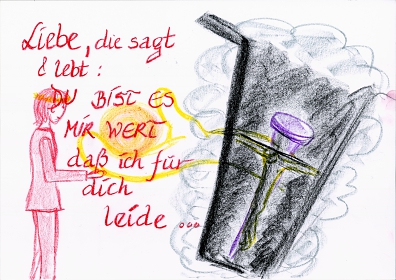 Liebe, die sagt
& lebt:
DU BIST ES
MIR WERT
daß ich für
dich
leide ...